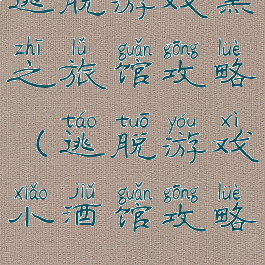 逃脱游戏黑
zhī lǚ guǎn gōng lüè
之旅馆攻略
táo tuō yóu xì
（逃脱游戏
xiǎo jiǔ guǎn gōng lüè
小酒馆攻略